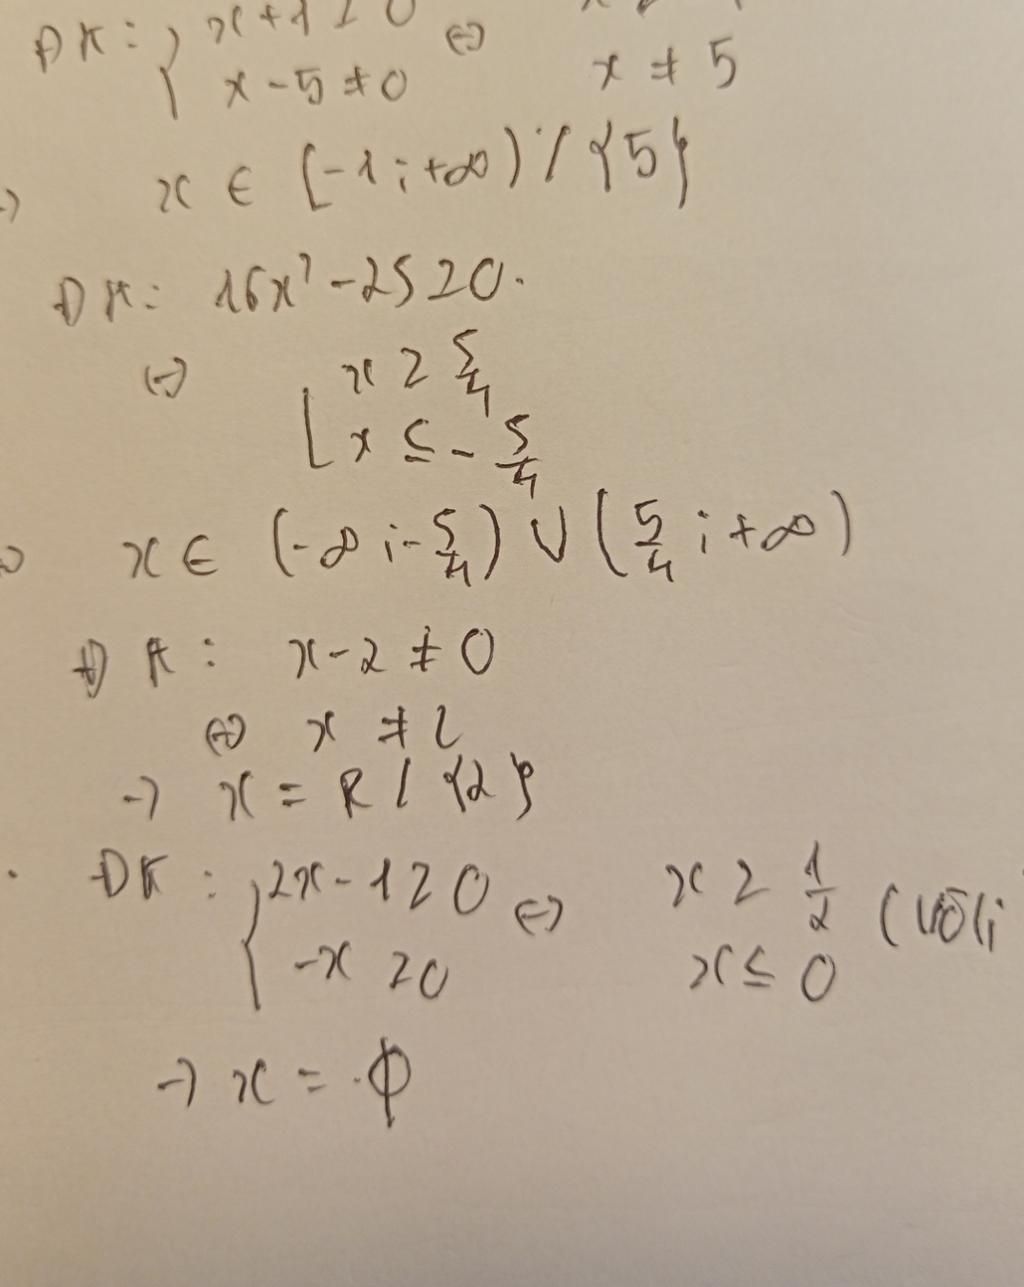 ĐK: { x+1 ≥ 0 ⇔
x-5 ≠ 0 x ≠ 5
→ x ∈ [-1; +∞) \ {5}
ĐK: 16x² - 25 ≥ 0.
⇔ [ x ≥ 5/4
x ≤ - 5/4
⇔ x ∈ (-∞; -5/4) ∪ (5/4; +∞)
ĐK: x-2 ≠ 0
⇔ x ≠ 2
→ x = R / {2}
. ĐK: { 2x-1 ≥ 0 ⇔ x ≥ 1/2 (vôlí
-x ≥ 0 x ≤ 0
→ x = ϕ